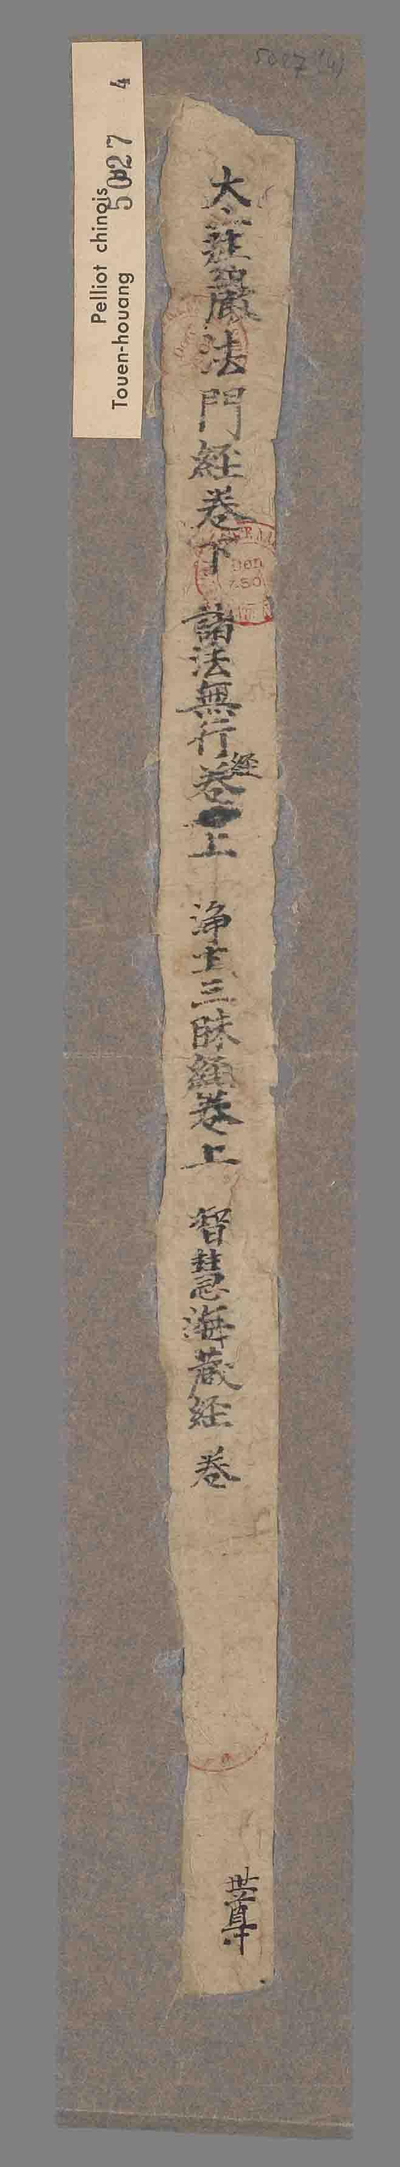 大莊嚴法門經卷下 諸法無行經卷上 淨土三昧經卷上 智慧海藏經 卷
世尊
Pelliot chinois
Touen-houang
5027 4
5027 (4)